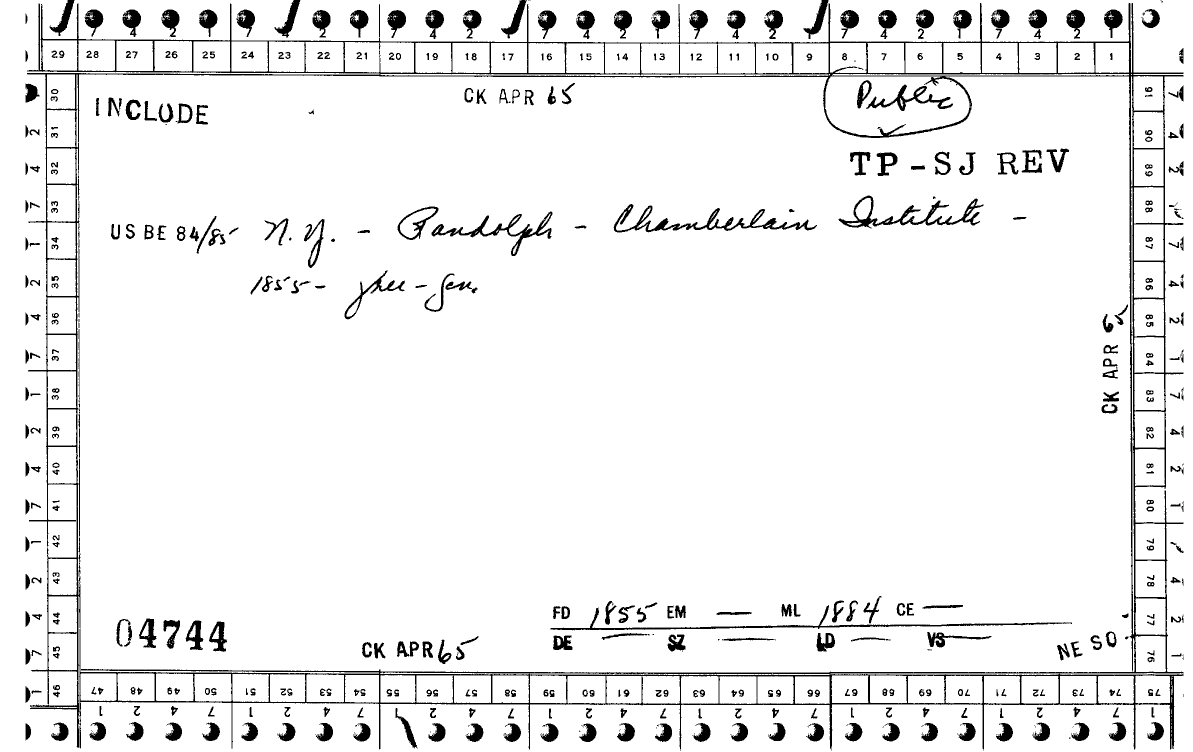 7 4 2 1 7 4 2 1 7 4 2 1 7 4 2 1 7 4 2 1 7 4 2 1 7 4 2 1
29 28 27 26 25 24 23 22 21 20 19 18 17 16 15 14 13 12 11 10 9 8 7 6 5 4 3 2 1
INCLUDE
CK APR 65
Public
TP-SJ REV
US BE 84/85 N.Y. - Randolph - Chamberlain Institute -
1855 - free - Gen.
CK APR 65
FD 1855 EM — ML 1884 CE —
DE — SZ — LD — VS —
04744
CK APR 65
NE SO
30 31 32 33 34 35 36 37 38 39 40 41 42 43 44 45 46
91 90 89 88 87 86 85 84 83 82 81 80 79 78 77 76
47 48 49 50 51 52 53 54 55 56 57 58 59 60 61 62 63 64 65 66 67 68 69 70 71 72 73 74 75
1 2 4 7 1 2 4 7 1 2 4 7 1 2 4 7 1 2 4 7 1 2 4 7 1 2 4 7 1